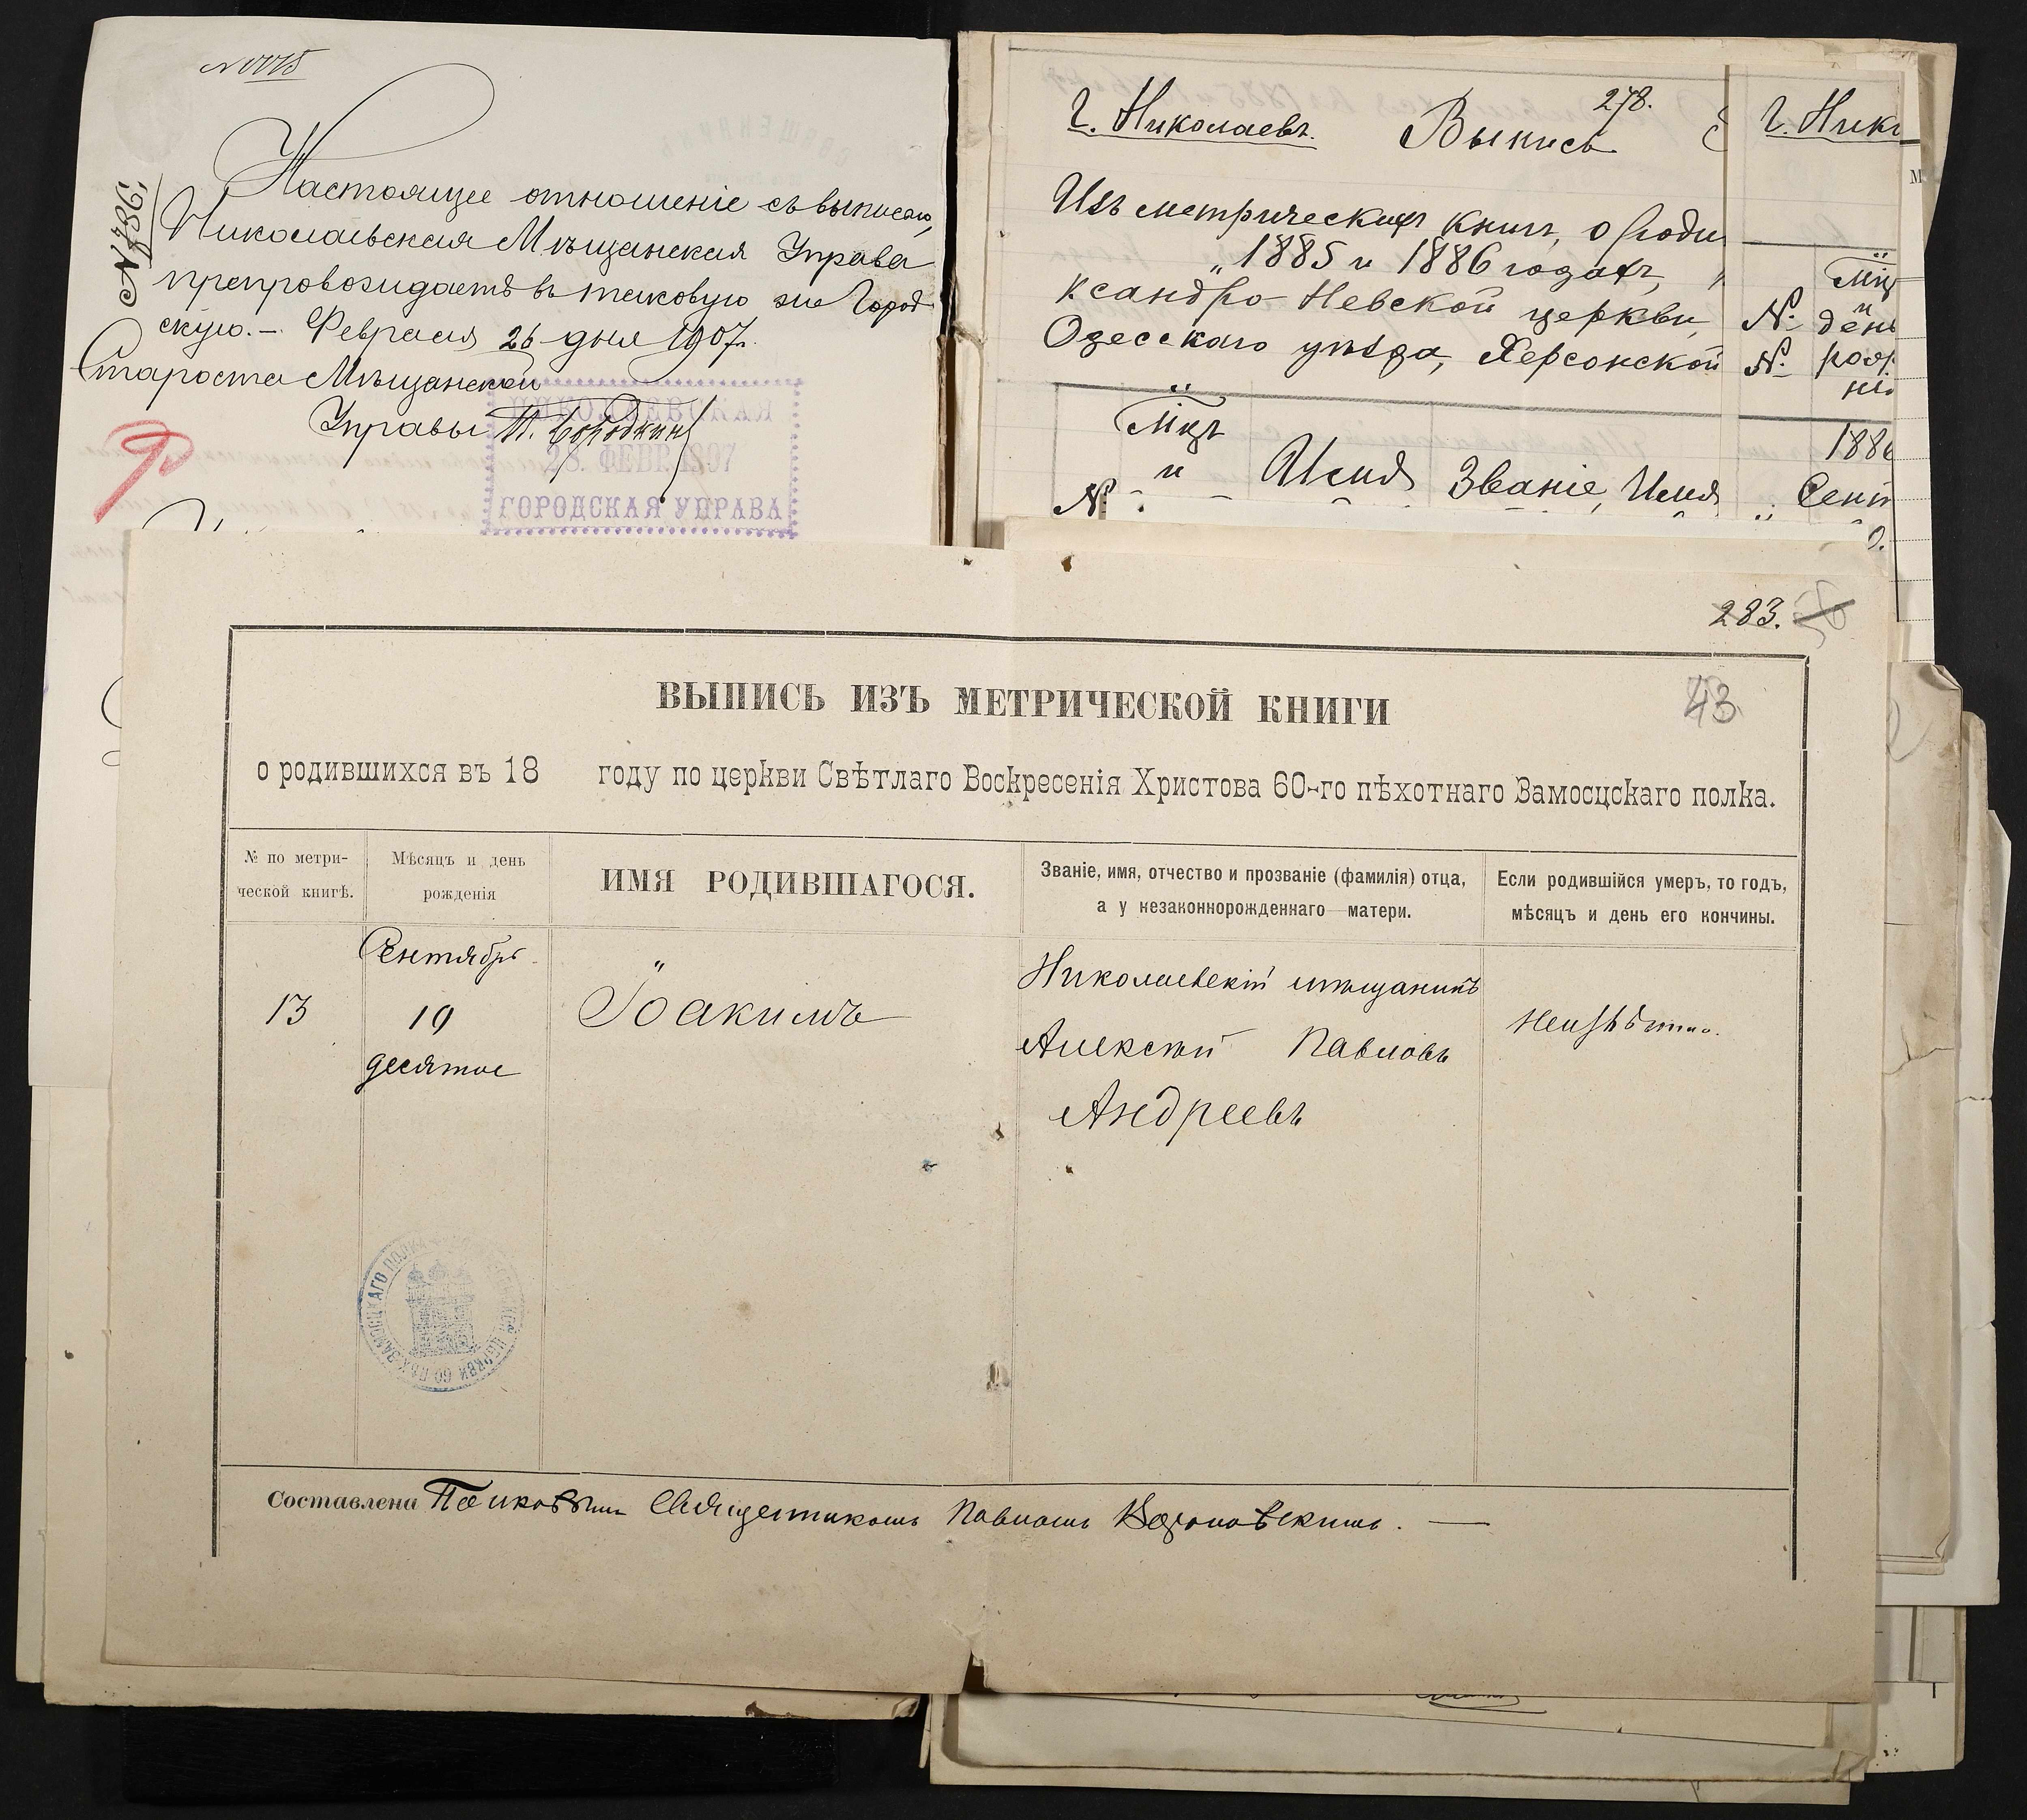 № 786.
Настоящее отношеніе съ выписью,
Николаевская Мѣщанская Управа
препровождаетъ въ таковую же Город
скую. – Февраля 26 дня 1907.
Староста Мѣщанской
Управы П. Бородкин
НИКОЛАЕВСКАЯ
28. ФЕВР. 1897
ГОРОДСКАЯ УПРАВА
278.
Г. Николаевъ. Выпись
Изъ метрическихъ книгъ, о роди
„ 1885 и 1886 годахъ, „
ксандро-Невской церкви,
Одесскаго уѣзда, Херсонской
Мцъ
и
№ Имя Званіе, Имя
Г. Нико
Мцъ
и
№ день
№ рож
ні
1886
Сент
283.
43
ВЫПИСЬ ИЗЪ МЕТРИЧЕСКОЙ КНИГИ
о родившихся въ 18 году по церкви Свѣтлаго Воскресенія Христова 60-го пѣхотнаго Замосцскаго полка.
№ по метри-
ческой книгѣ.
Мѣсяцъ и день
рожденія
ИМЯ РОДИВШАГОСЯ.
Званіе, имя, отчество и прозваніе (фамилія) отца,
а у незаконнорожденнаго—матери.
Если родившійся умеръ, то годъ,
мѣсяцъ и день его кончины.
Сентябрь
13
10
десятое
Іоакимъ
Николаевскій мѣщанинъ
Алексѣй Павловъ
Андреевъ
Неизвѣстно.
Составлена Полковымъ Священникомъ Павломъ